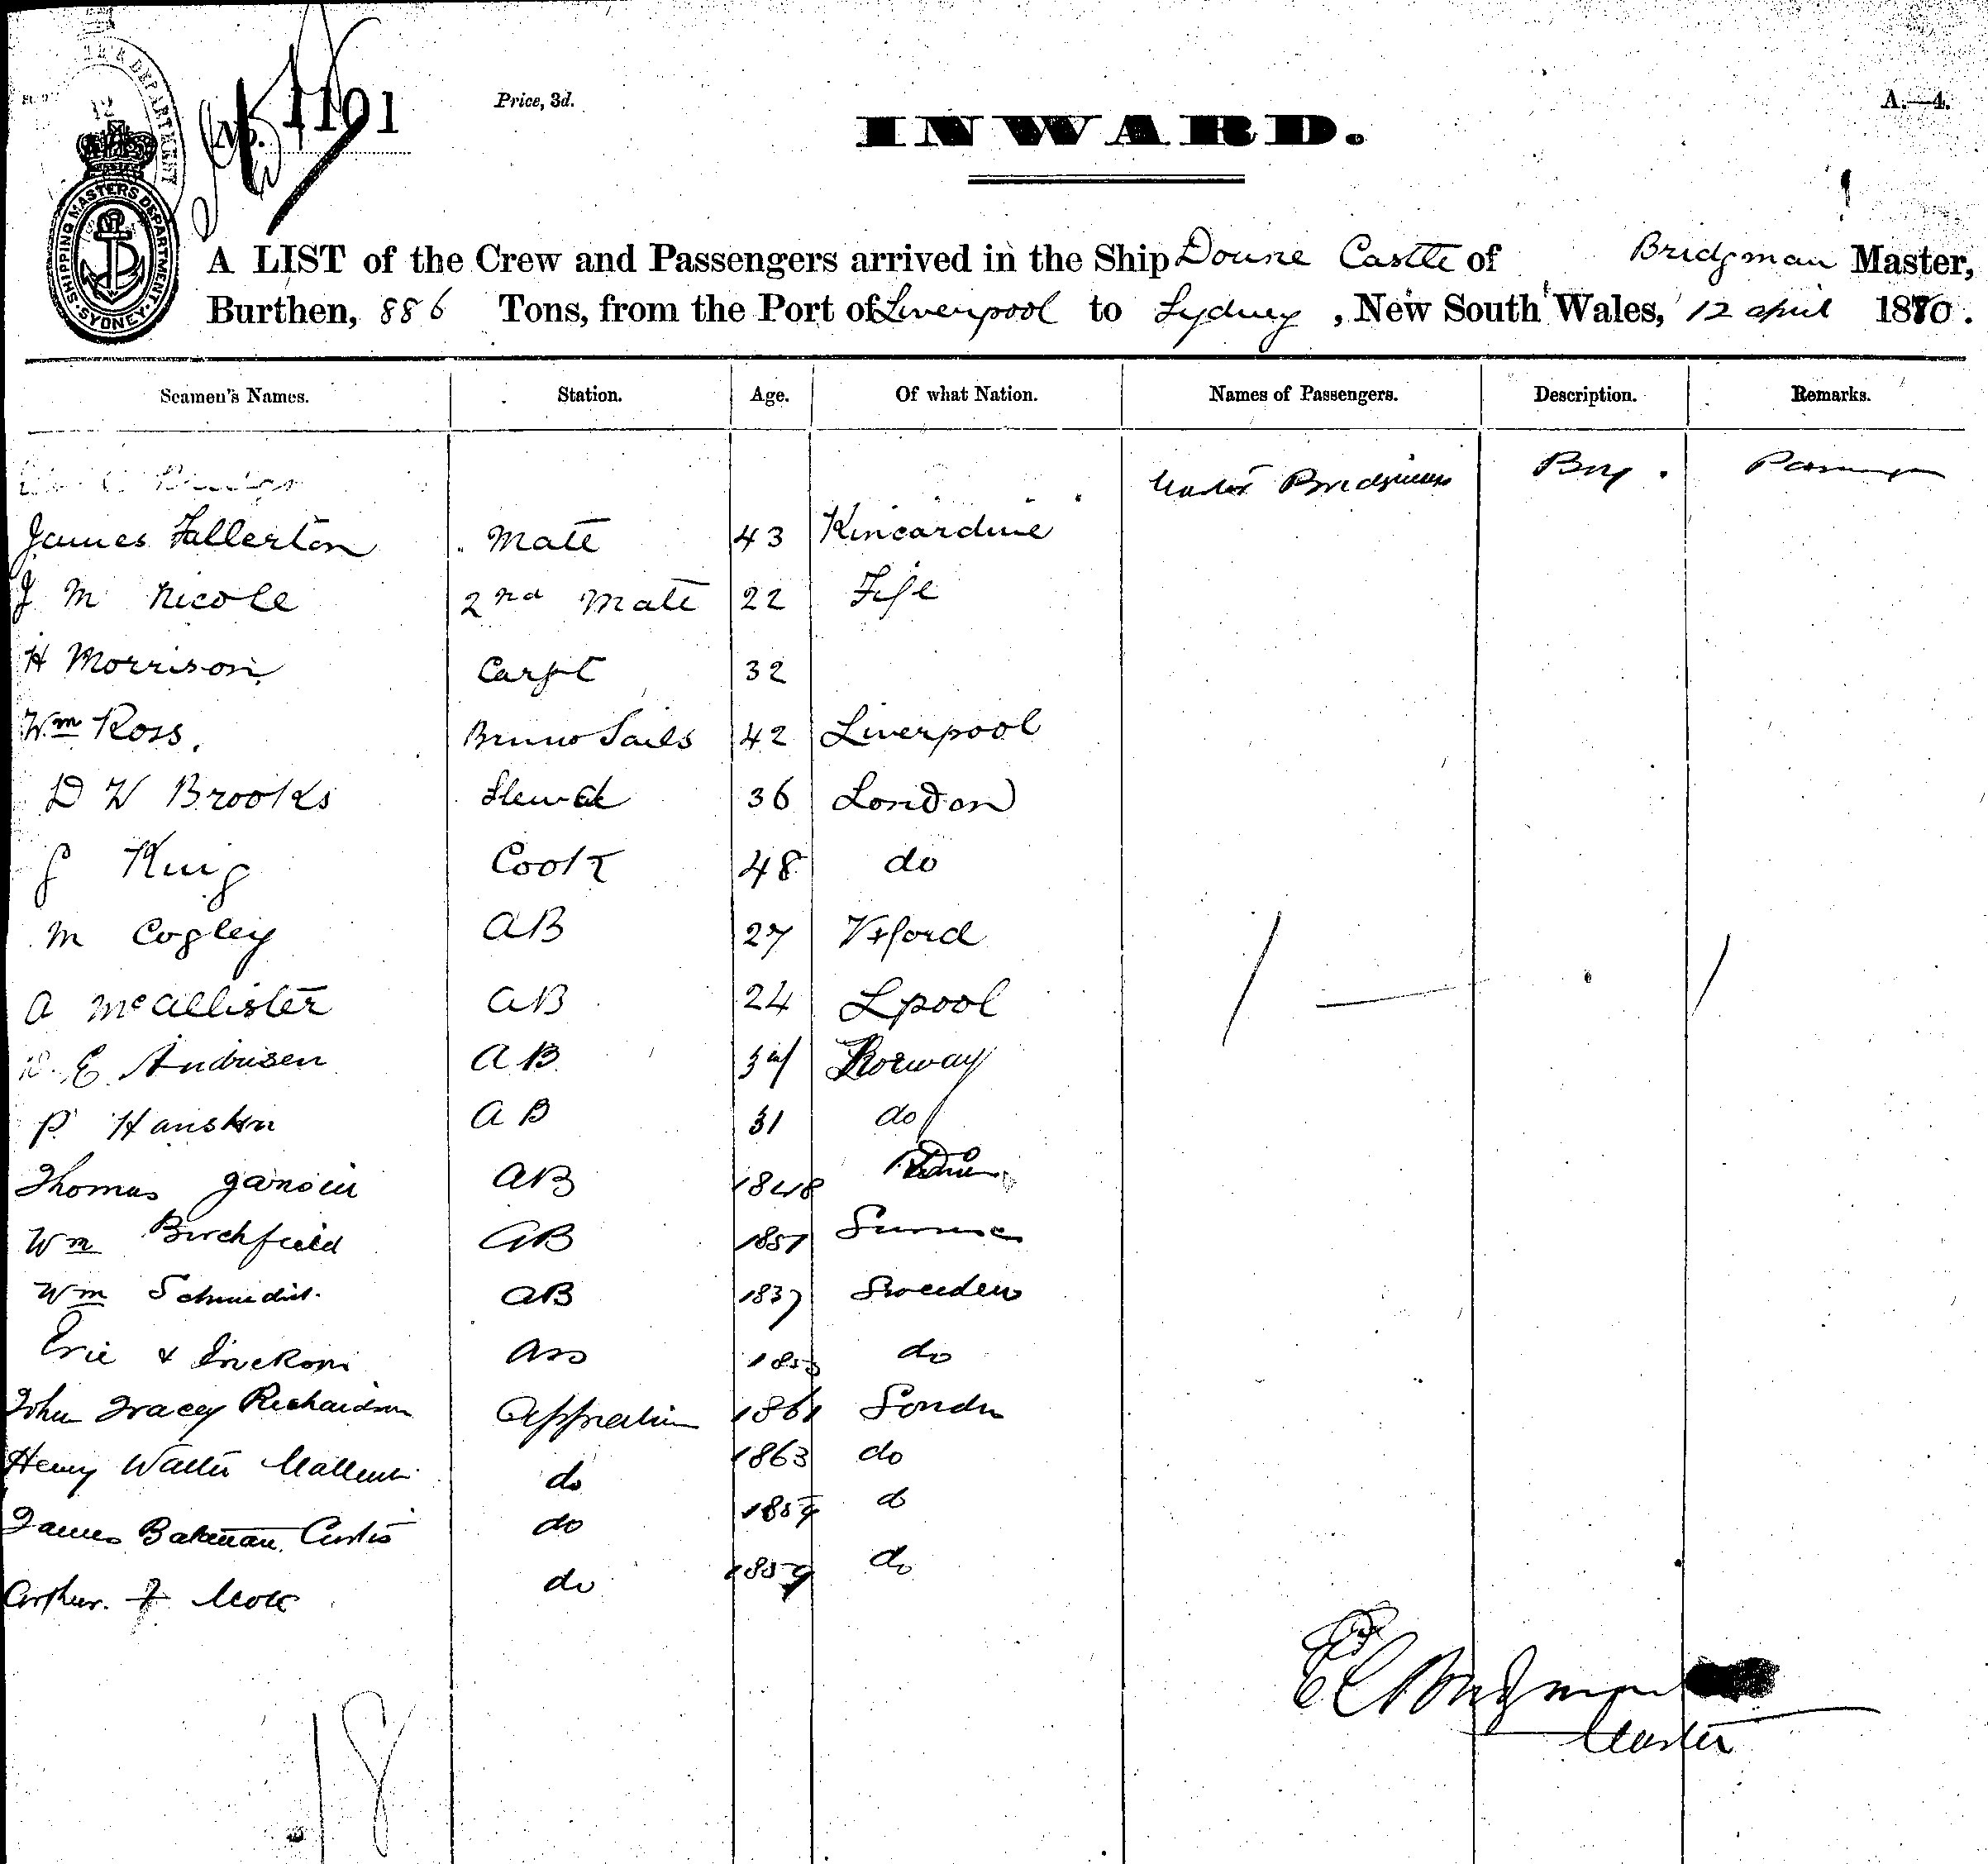 No. 1101
Price, 3d.
A.—4.
INWARD.
SHIPPING MASTERS DEPARTMENT SYDNEY
A LIST of the Crew and Passengers arrived in the Ship Doune Castle of Bridgman Master,
Burthen, 886 Tons, from the Port of Liverpool to Sydney, New South Wales, 12 april 1880.
Seamen's Names. Station. Age. Of what Nation. Names of Passengers. Description. Remarks.
Master Bridgman Boy. Passenger
James Fullerton Mate 43 Kincardine
J M Nicole 2nd Mate 22 Fife
H Morrison Carpt 32
Wm Ross. Sails 42 Liverpool
D W Brooks Stewd 36 London
J King Cook 48 do
M Cogley AB 27 Wxford
A McAllister AB 24 Lpool
E Andrisen AB Norway
P Hansen AB 31 do
Thomas AB 1848
Wm Birchfield AB 1851
Wm Schmidt. AB 1837 Sweden
Eric 1853 do
John Tracey Richardson Apprentice 1861 London
Henry Walter do 1863 do
James Bateman Curtis do 1859 do
Arthur. F do 1859 do
18
E C Bridgman
Master